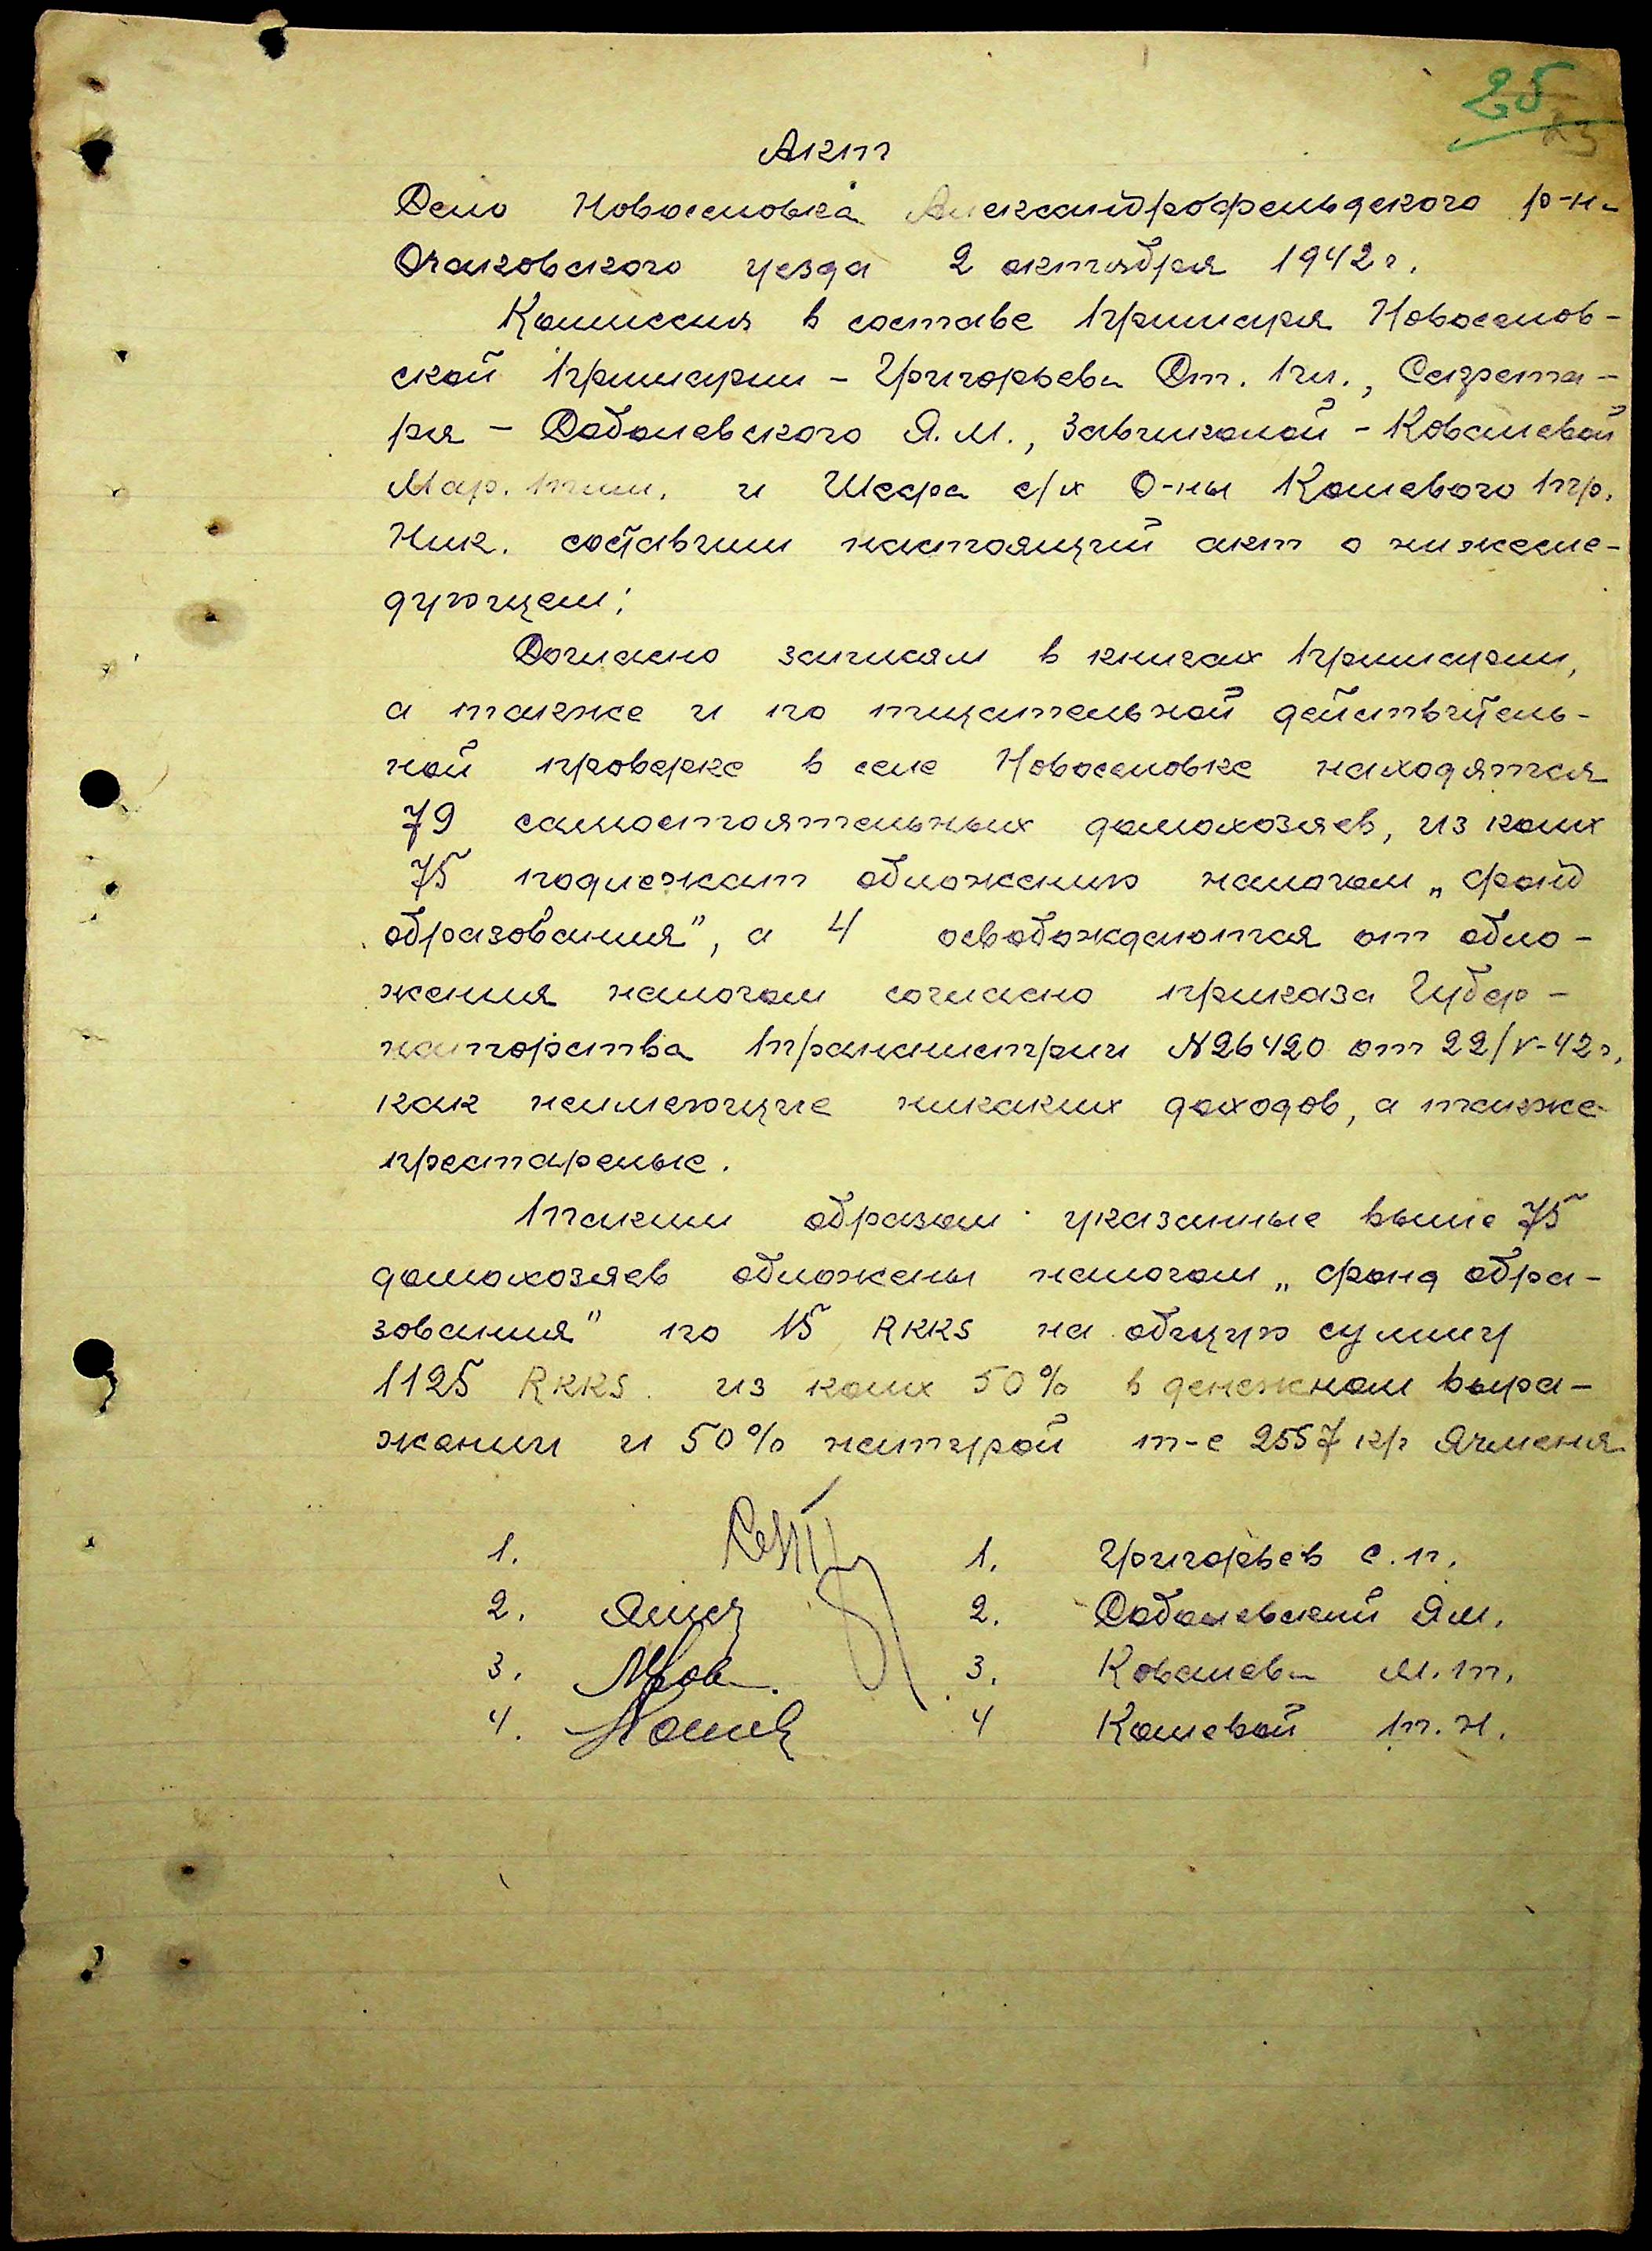 25
23
Акт
Село Новоселовка Александрофельдского р-на
Очаковского уезда 2 октября 1942 г.
Комиссия в составе Примаря Новоселов-
ской Примарии - Григорьева Ст. Пл., Секрета-
ря - Соболевского Я. М., Завшколой - Ковалевой
Мар. Тим. и Шефа с/х О-ны Кошевого Пр.
Ник. составили настоящий акт о нижесле-
дующем:
Согласно записям в книгах Примарии,
а также и по тщательной действитель-
ной проверке в селе Новоселовке находятся
79 самостоятельных домохозяев, из коих
75 подлежат обложению налогом „фонд
образования", а 4 освобождаются от обло-
жения налогом согласно приказа Губер-
наторства Транснистрии N 26420 от 22/V-42 г,
как неимеющие никаких доходов, а также
престарелые.
Таким образом указанные выше 75
домохозяев обложены налогом „фонд обра-
зования" по 15 RKKS на общую сумму
1125 RKKS. из коих 50% в денежном выра-
жении и 50% натурой т-е 2557 кг Ячменя
1. 1. Григорьев С. П.
2. 2. Соболевский Я М.
3. 3. Ковалева М. Т.
4. 4 Кошевой П. Н.